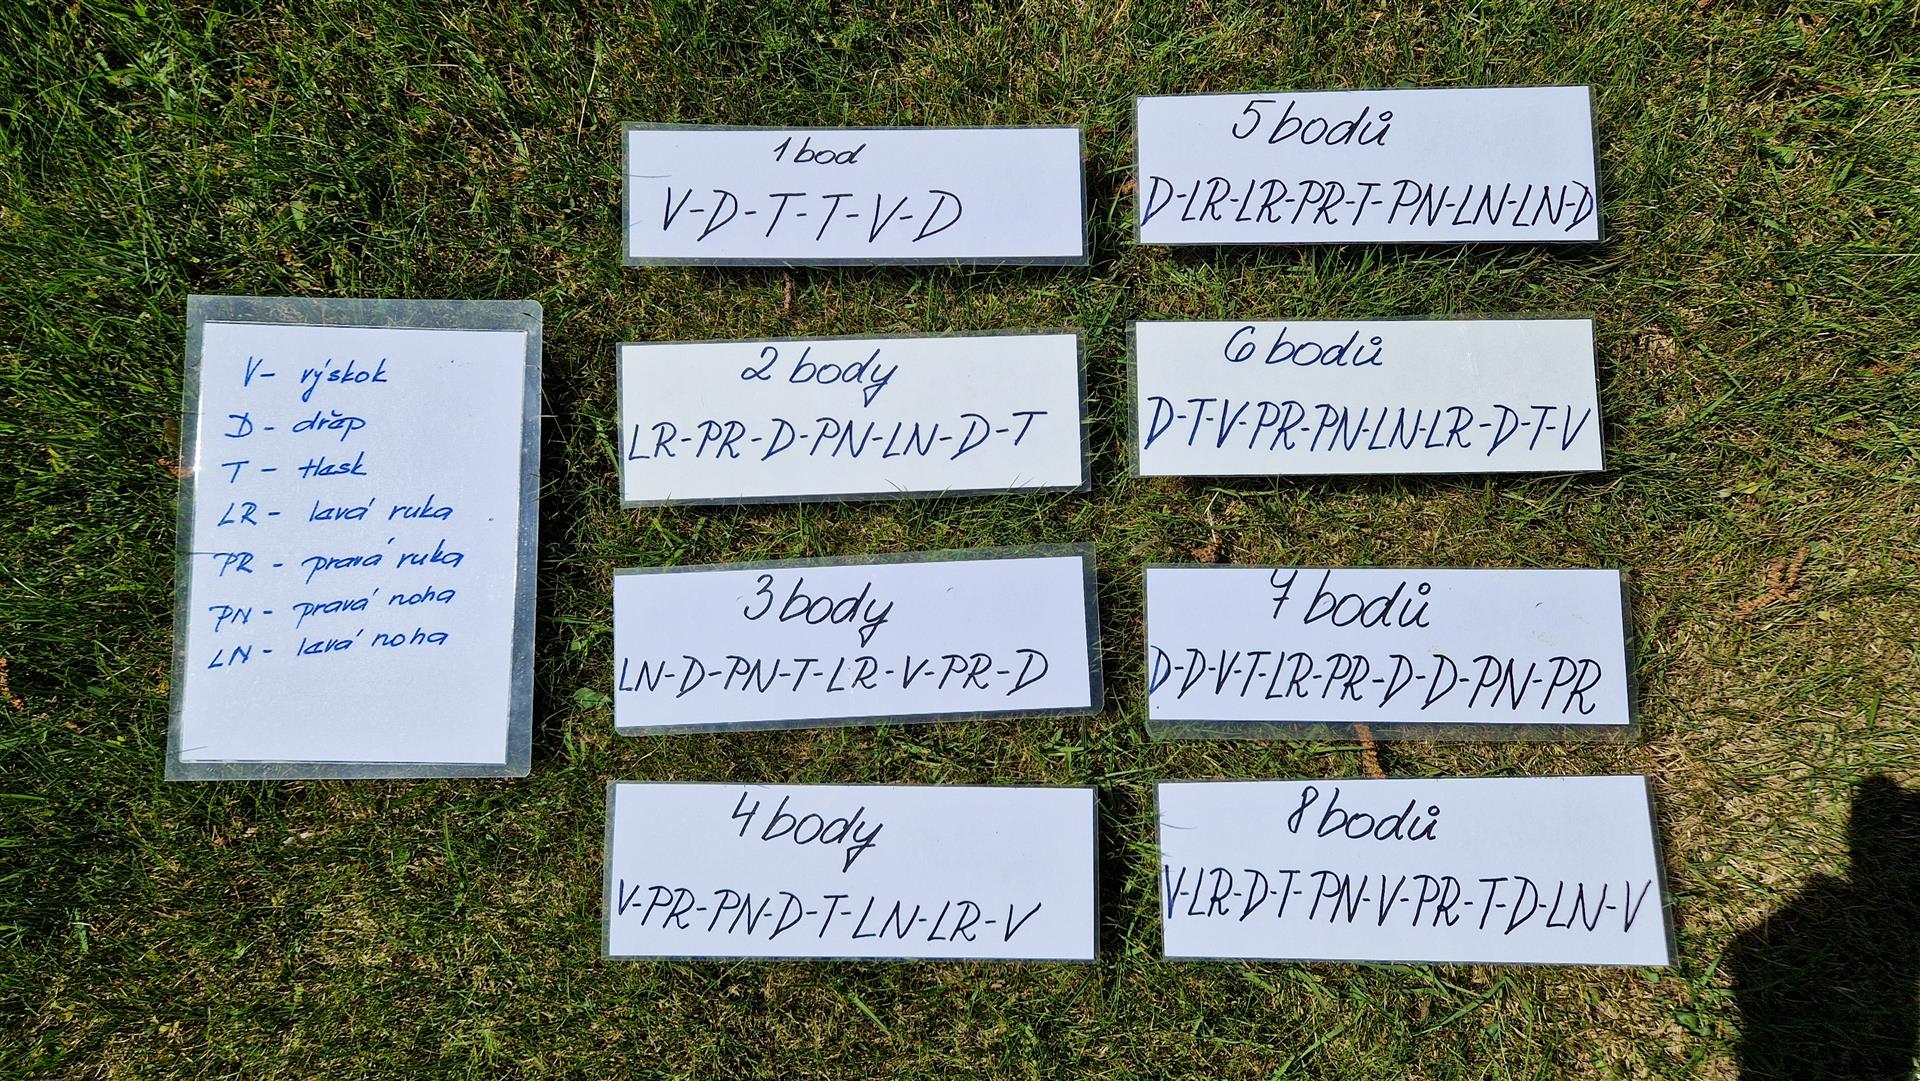 V- výskok
D- dřep
T - tlesk
LR- levá ruka
PR - pravá ruka
PN - pravá noha
LN - levá noha
1 bod
V-D-T-T-V-D
2 body
LR-PR-D-PN-LN-D-T
3 body
LN-D-PN-T-LR-V-PR-D
4 body
V-PR-PN-D-T-LN-LR-V
5 bodů
D-LR-LR-PR-T-PN-LN-LN-D
6 bodů
D-T-V-PR-PN-LN-LR-D-T-V
7 bodů
D-D-V-T-LR-PR-D-D-PN-PR
8 bodů
V-LR-D-T-PN-V-PR-T-D-LN-V